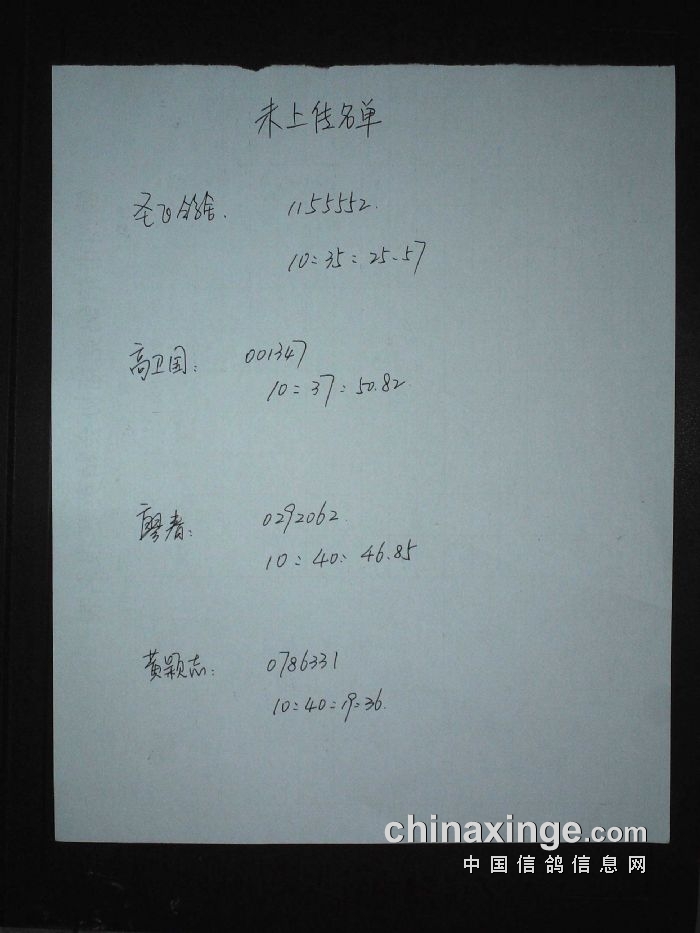 未上传名单
圣飞鸽舍. 1155552.
10:35:25.57
高卫国: 001347
10:37:50.82.
廖春: 0292062.
10:40:46.85
黄颖志: 0786331
10:40:19:36.
chinaxinge.com
中国信鸽信息网